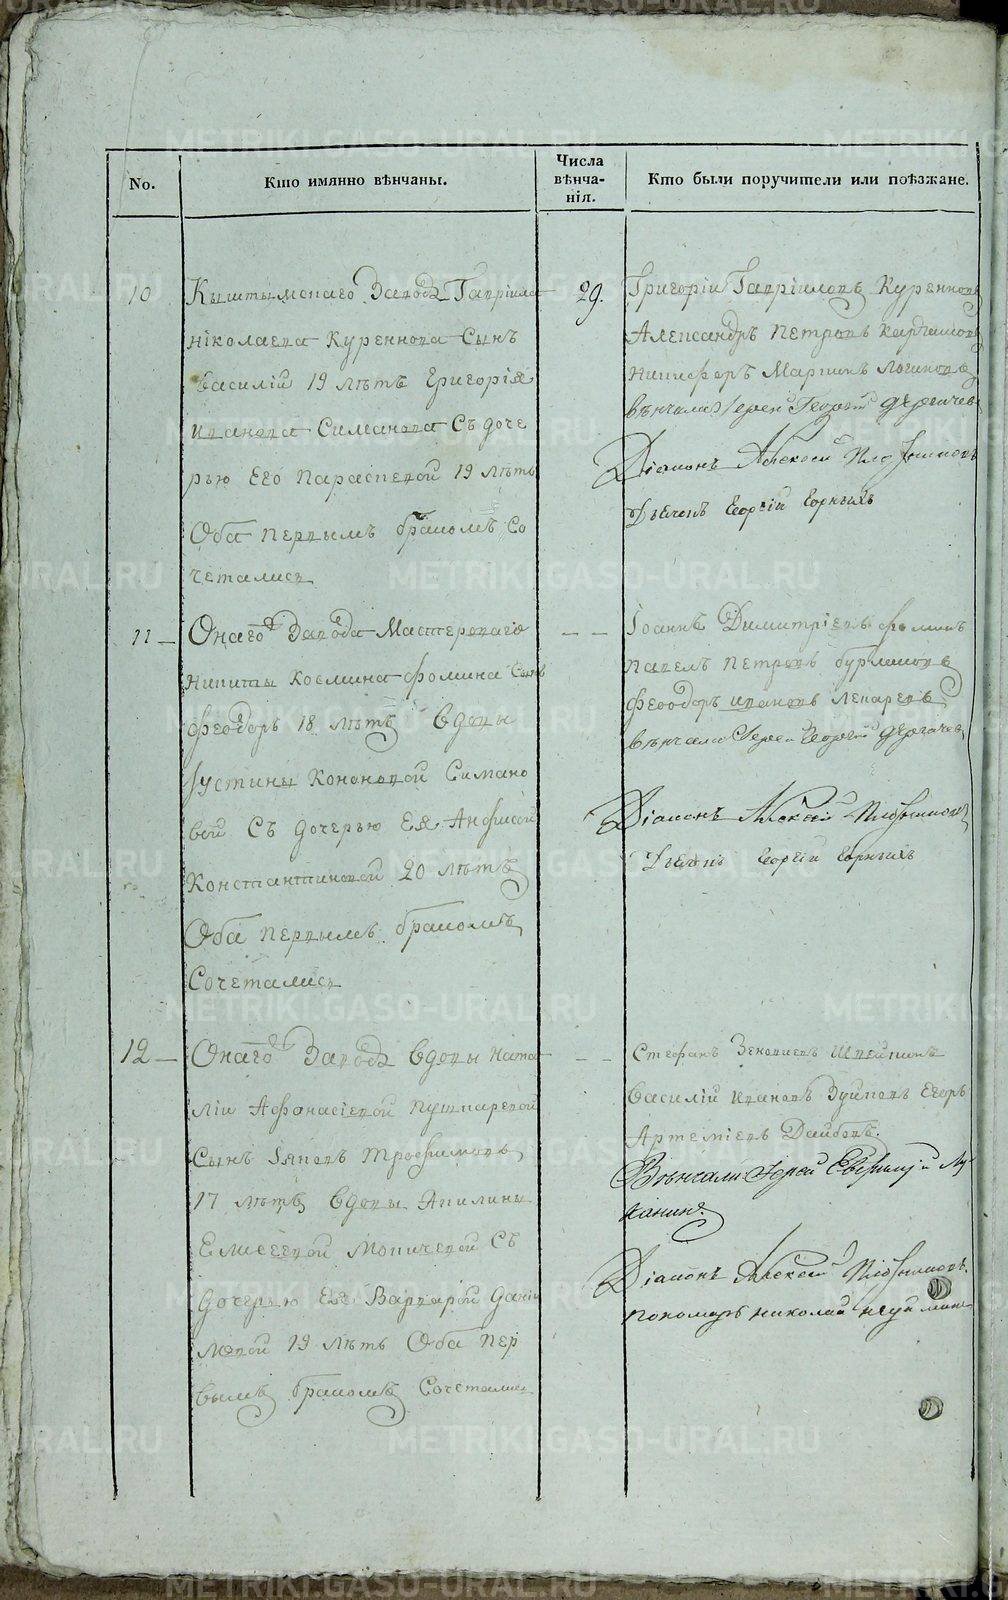 No.
Кто имянно вѣнчаны.
Числа
вѣнча-
нія.
Кто были поручители или поѣзжане.
10
Кыштымскаго Завода Гавріила
Николаева Куреннова Сынъ
Василій 19 лѣтъ Григорія
Иванова Симанова Съ доче
рью Его Параспевой 19 лѣтъ
Оба первымъ бракомъ Со
четались
29.
Григорій Гавріиловъ Куренновъ
Александръ Петровъ
Никифоръ Логиновъ
вѣнчали Іерей Георгій Дергачевъ
Діаконъ Алексей Плотниковъ
Дьячекъ Георгій Горныхъ
11
Онаго Завода Мастероваго
Никиты Космина Фомина Сынъ
Феодоръ 18 лѣтъ Вдовы
Іустины Кононовой Симано
вой Съ дочерью Ея Анфисой
Константиновой 20 лѣтъ
Оба первымъ бракомъ
Сочетались
Іоаннъ Димитріевъ Фоминъ
Павелъ Петровъ Бурмаковъ
Феодоръ Ивановъ
вѣнчали Іерей Георгій Дергачевъ
Діаконъ Алексей Плотниковъ
Дьячекъ Георгій Горныхъ
12
Онаго Завода Вдовы Ната
ліи Афонасіевой Пушкаревой
Сынъ Іяковъ Трофимовъ
17 лѣтъ Вдовы Акилины
Елисеевой Съ
дочерью Ея Варварой Дані
ловой 19 лѣтъ Оба пер
вымъ бракомъ Сочетались
Стефанъ Зеновіевъ Швейкинъ
Василій Ивановъ Зуйковъ Егоръ
Артеміевъ
Вѣнчали Іерей
Діаконъ Алексей Плотниковъ
пономарь николай
METRIKI.GASO-URAL.RU